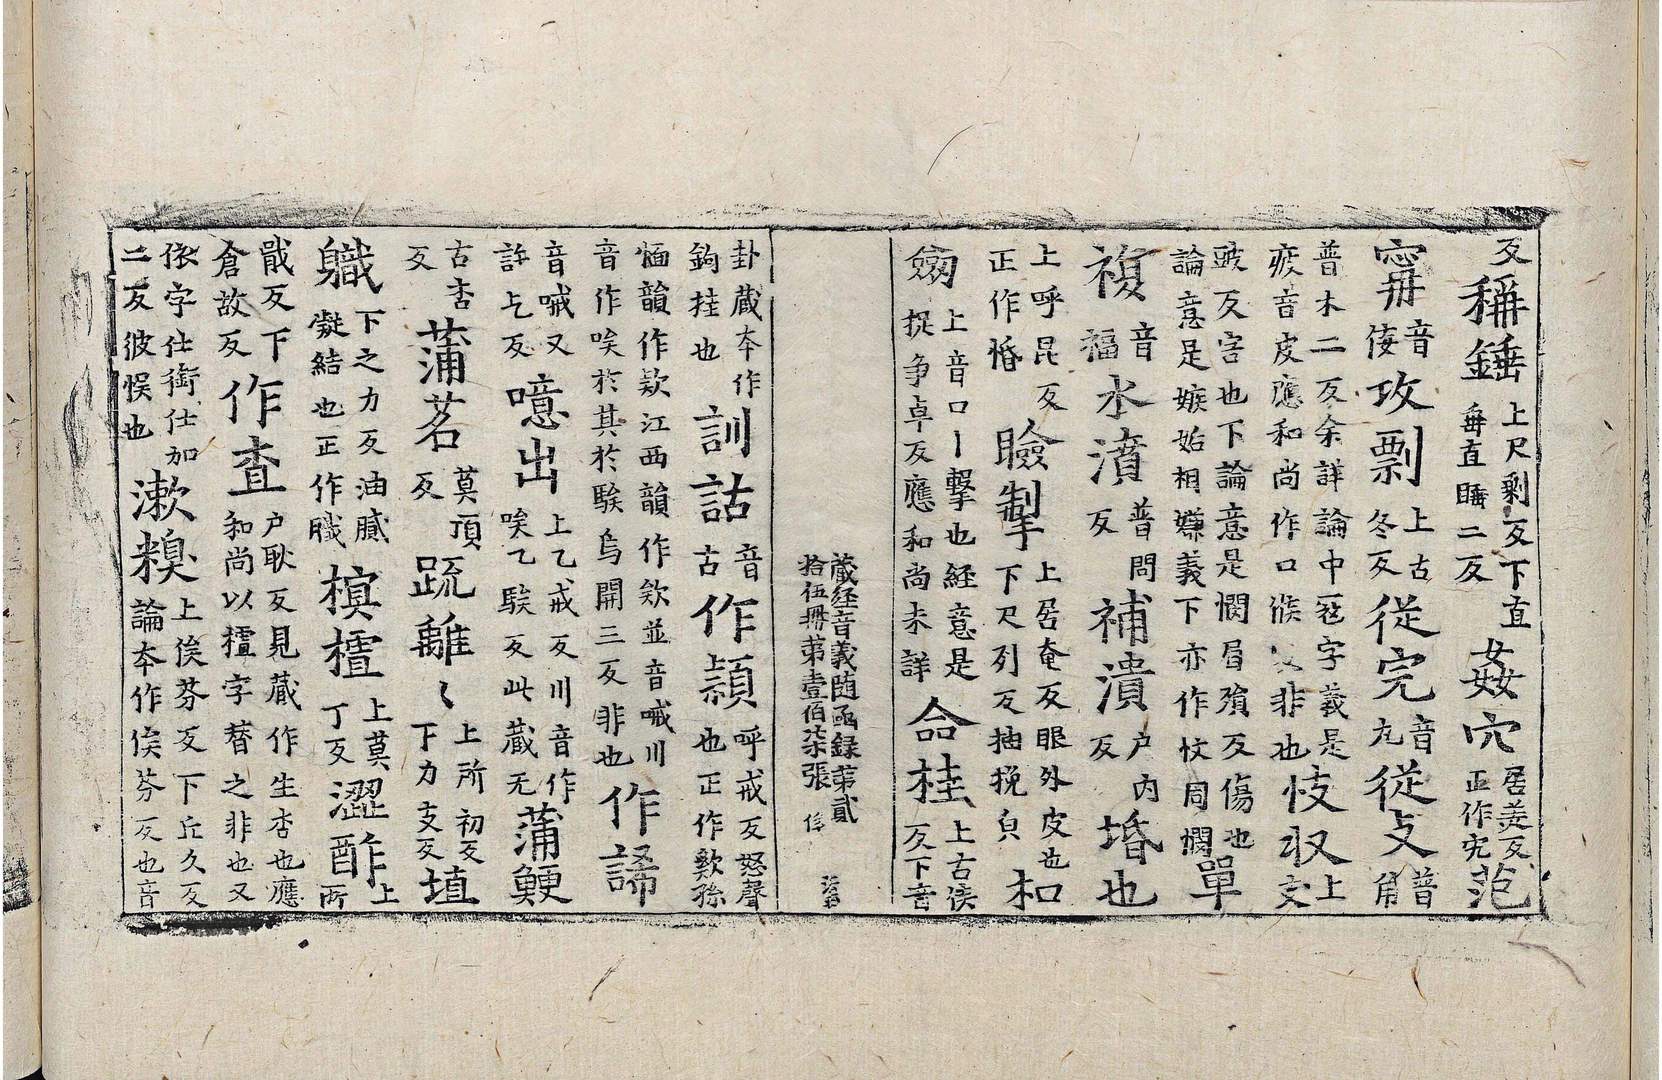 反稱錘上尺剩反下直毋直睡二反姦宄居美反正作宄范
甯音侫攻剽上古冬反從完音丸從攴普角
普木二反余詳論中冦字義是疲音皮應和尚作口俟反非也忮収上文
豉反害也下論意是憫眉殞反傷也論意是嫉妬相嫌義下亦作忟同憫單
複音福水濆普問反補潰户内反埱也
上呼昆反正作惛瞼掣上居奄反眼外皮也下尺列反抽挽皃和
㓻上音口丨擊也経意是捉争卓反應和尚未詳合桂上古侯反下音
藏経音義随函録第貳拾伍冊第壹佰柒張
卦藏夲作鉤挂也訓詁音古作頴呼戒反怒聲也正作欸孫
愐韻作欵江西韻作欸並音喊川音作唉於其於騃烏開三反非也作諦
音喊又許乞反噫出上乙戒反川音作唉乙騃反此藏无蒲鯁
古杏反蒲茗莫頂反䟽離上所初反下力支反埴
軄下之力反油膩凝結也正作膱榠樝上莫丁反澀酢上所
戢反下倉故反作查户耿反見藏作生杏也應和尚以樝字替之非也又
依字仕銜仕加二反彼悮也漱糗上俟芬反下丘久反論夲作俟芬反也音